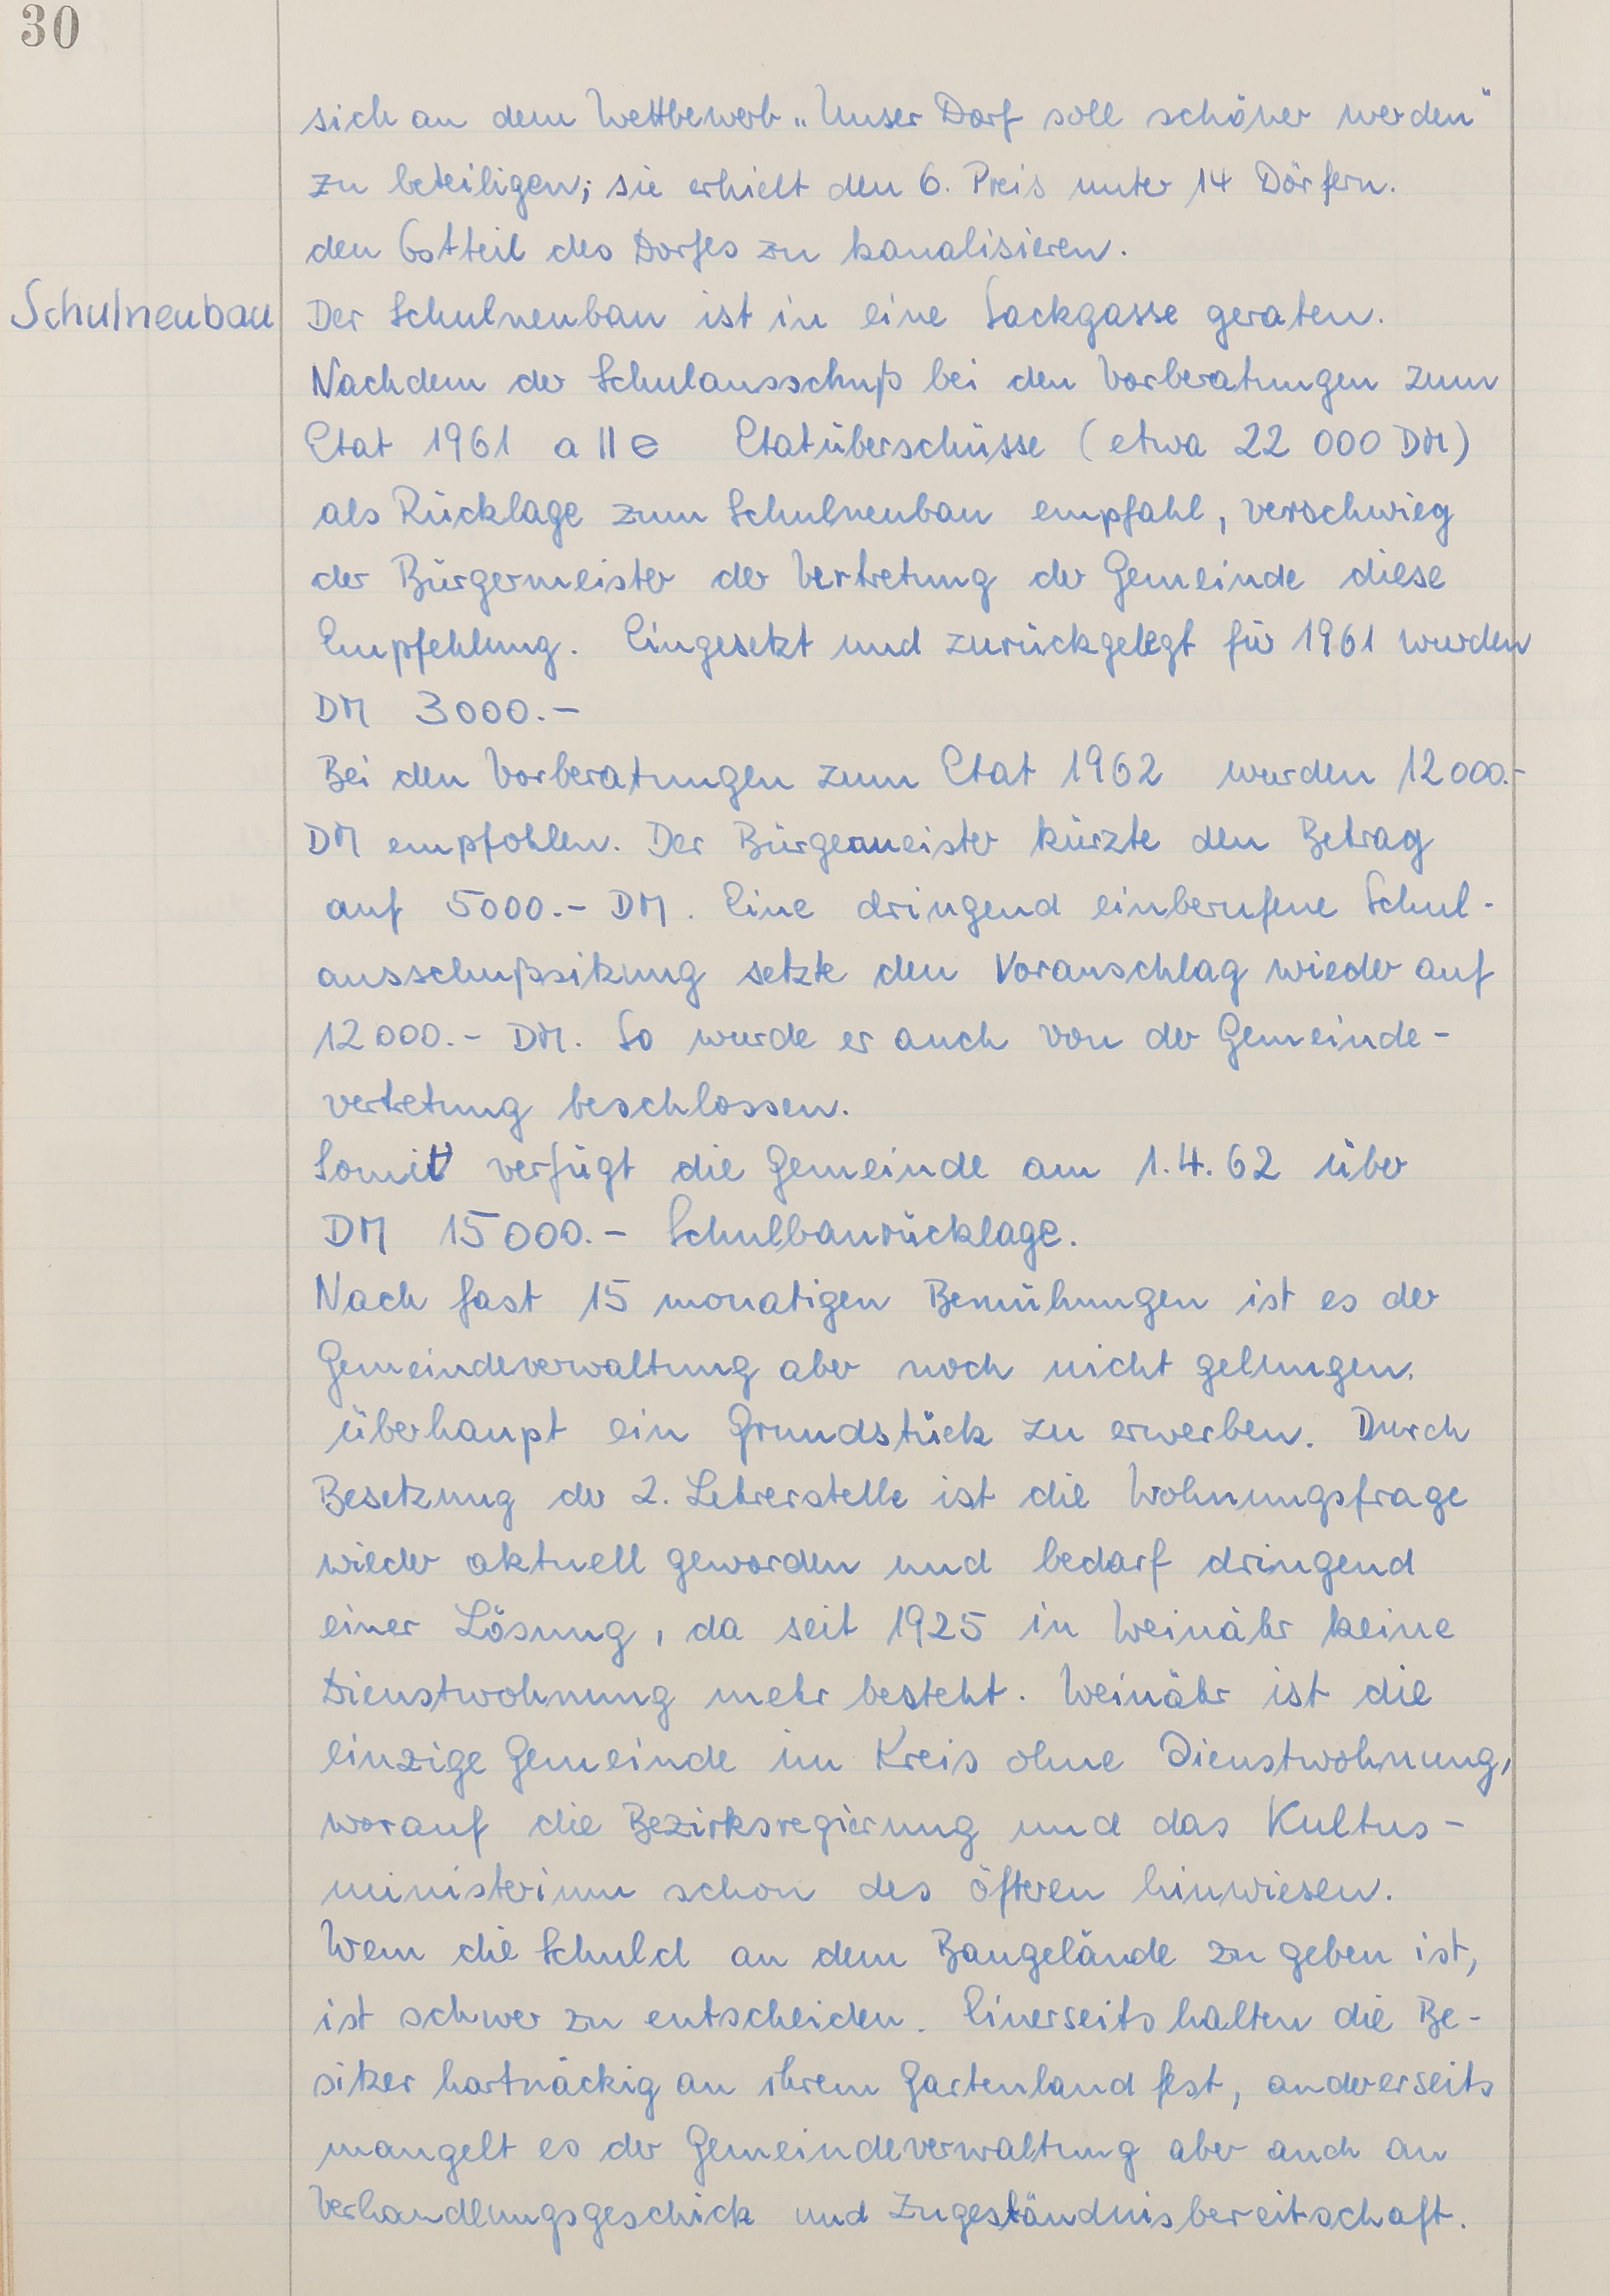 30
sich an dem Wettbewerb „Unser Dorf soll schöner werden"
zu beteiligen; sie erhielt den 6. Preis unter 14 Dörfern.
den Ostteil des Dorfes zu kanalisieren.
Schulneubau
Der Schulneubau ist in eine Sackgasse geraten.
Nachdem der Schulausschuß bei den Vorberatungen zum
Etat 1961 alle Etatüberschüsse (etwa 22 000 DM)
als Rücklage zum Schulneubau empfahl, verschwieg
der Bürgermeister der Vertretung der Gemeinde diese
Empfehlung. Eingesetzt und zurückgelegt für 1961 wurden
DM 3000.-
Bei den Vorberatungen zum Etat 1962 wurden 12000.-
DM empfohlen. Der Bürgermeister kürzte den Betrag
auf 5000.- DM. Eine dringend einberufene Schul-
ausschußsitzung setzte den Voranschlag wieder auf
12000.- DM. So wurde er auch von der Gemeinde-
vertretung beschlossen.
Somit verfügt die Gemeinde am 1.4.62 über
DM 15000.- Schulbaurücklage.
Nach fast 15 monatigen Bemühungen ist es der
Gemeindeverwaltung aber noch nicht gelungen,
überhaupt ein Grundstück zu erwerben. Durch
Besetzung der 2. Lehrerstelle ist die Wohnungsfrage
wieder aktuell geworden und bedarf dringend
einer Lösung, da seit 1925 in Weinähr keine
Dienstwohnung mehr besteht. Weinähr ist die
einzige Gemeinde im Kreis ohne Dienstwohnung,
worauf die Bezirksregierung und das Kultus-
ministerium schon des öfteren hinwiesen.
Wem die Schuld an dem Baugelände zu geben ist,
ist schwer zu entscheiden. Einerseits halten die Be-
sitzer hartnäckig an ihrem Gartenland fest, andererseits
mangelt es der Gemeindeverwaltung aber auch an
Verhandlungsgeschick und Zugeständnisbereitschaft.